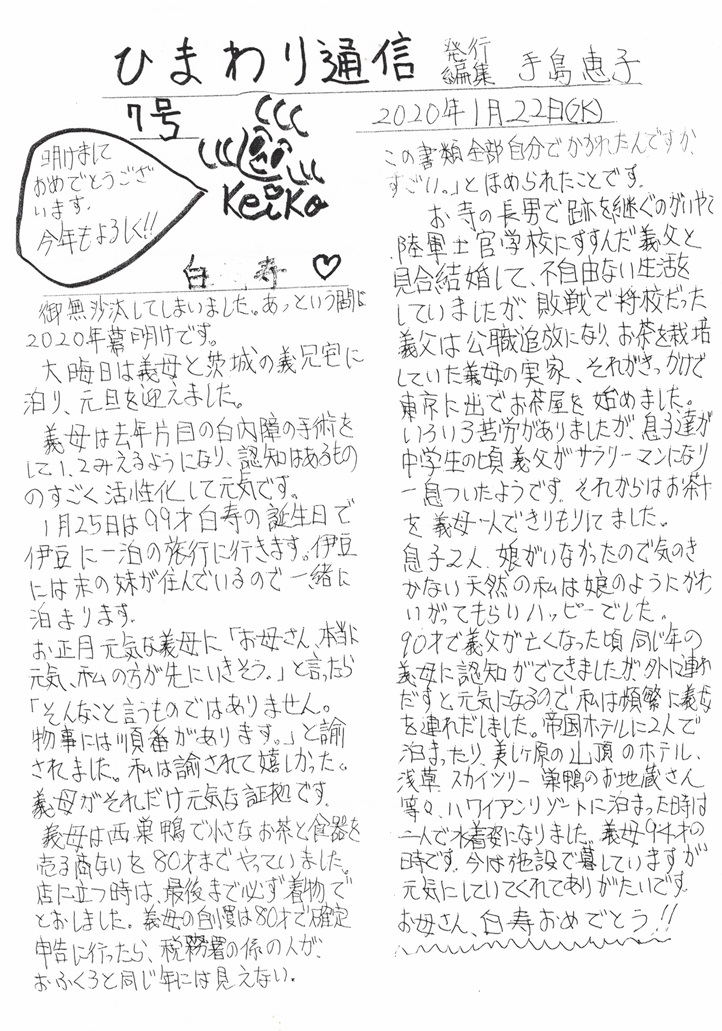 ひまわり通信
発行
編集 手島恵子
7号
2020年1月22日(水)
明けまして
おめでとうござ
います。
今年もよろしく!!
Keiko
白寿♡
御無沙汰してしまいました。あっという間に
2020年幕開けです。
大晦日は義母と茨城の義兄宅に
泊り、元旦を迎えました。
義母は去年片目の白内障の手術を
して1、2みえるようになり、認知はあるもの
のすごく活性化して元気です。
1月25日は99才白寿の誕生日で
伊豆に一泊の旅行に行きます。伊豆
には末の妹が住んでいるので一緒に
泊まります。
お正月元気な義母に「お母さん、本当に
元気、私の方が先にいきそう。」と言ったら
「そんなこと言うものではありません。
物事には順番があります。」と諭
されました。私は諭されて嬉しかった。
義母がそれだけ元気な証拠です。
義母は西巣鴨で小さなお茶と食器を
売る商ないを80才までやっていました。
店に立つ時は、最後まで必ず着物で
とおしました。義母の自慢は80才で確定
申告に行ったら、税務署の係の人が、
おふくろと同じ年には見えない。
この書類全部自分でかかれたんですか、
すごい。」とほめられたことです。
お寺の長男で跡を継ぐのがいやで
陸軍士官学校にすすんだ義父と
見合結婚して、不自由ない生活を
していましたが、敗戦で将校だった
義父は公職追放になり、お茶を栽培
していた義母の実家、それがきっかけで
東京に出てお茶屋を始めました。
いろいろ苦労がありましたが、息子達が
中学生の頃義父がサラリーマンになり
一息ついたようです。それからはお茶や
を義母一人できりもりしてました。
息子2人、娘がいなかったので気のき
かない天然の私は娘のようにかわ
いがってもらいハッピーでした。
90才で義父が亡くなった頃同じ年の
義母に認知がでてきましたが、外に連れ
だすと元気になるので、私は頻繁に義母
を連れだしました。帝国ホテルに2人で
泊まったり、美ヶ原の山頂のホテル、
浅草、スカイツリー、巣鴨のお地蔵さん
等々、ハワイアンリゾートに泊まった時は
二人で水着姿になりました。義母94才の
時です。今は施設で暮していますが
元気にしていてくれてありがたいです。
お母さん、白寿おめでとう!!